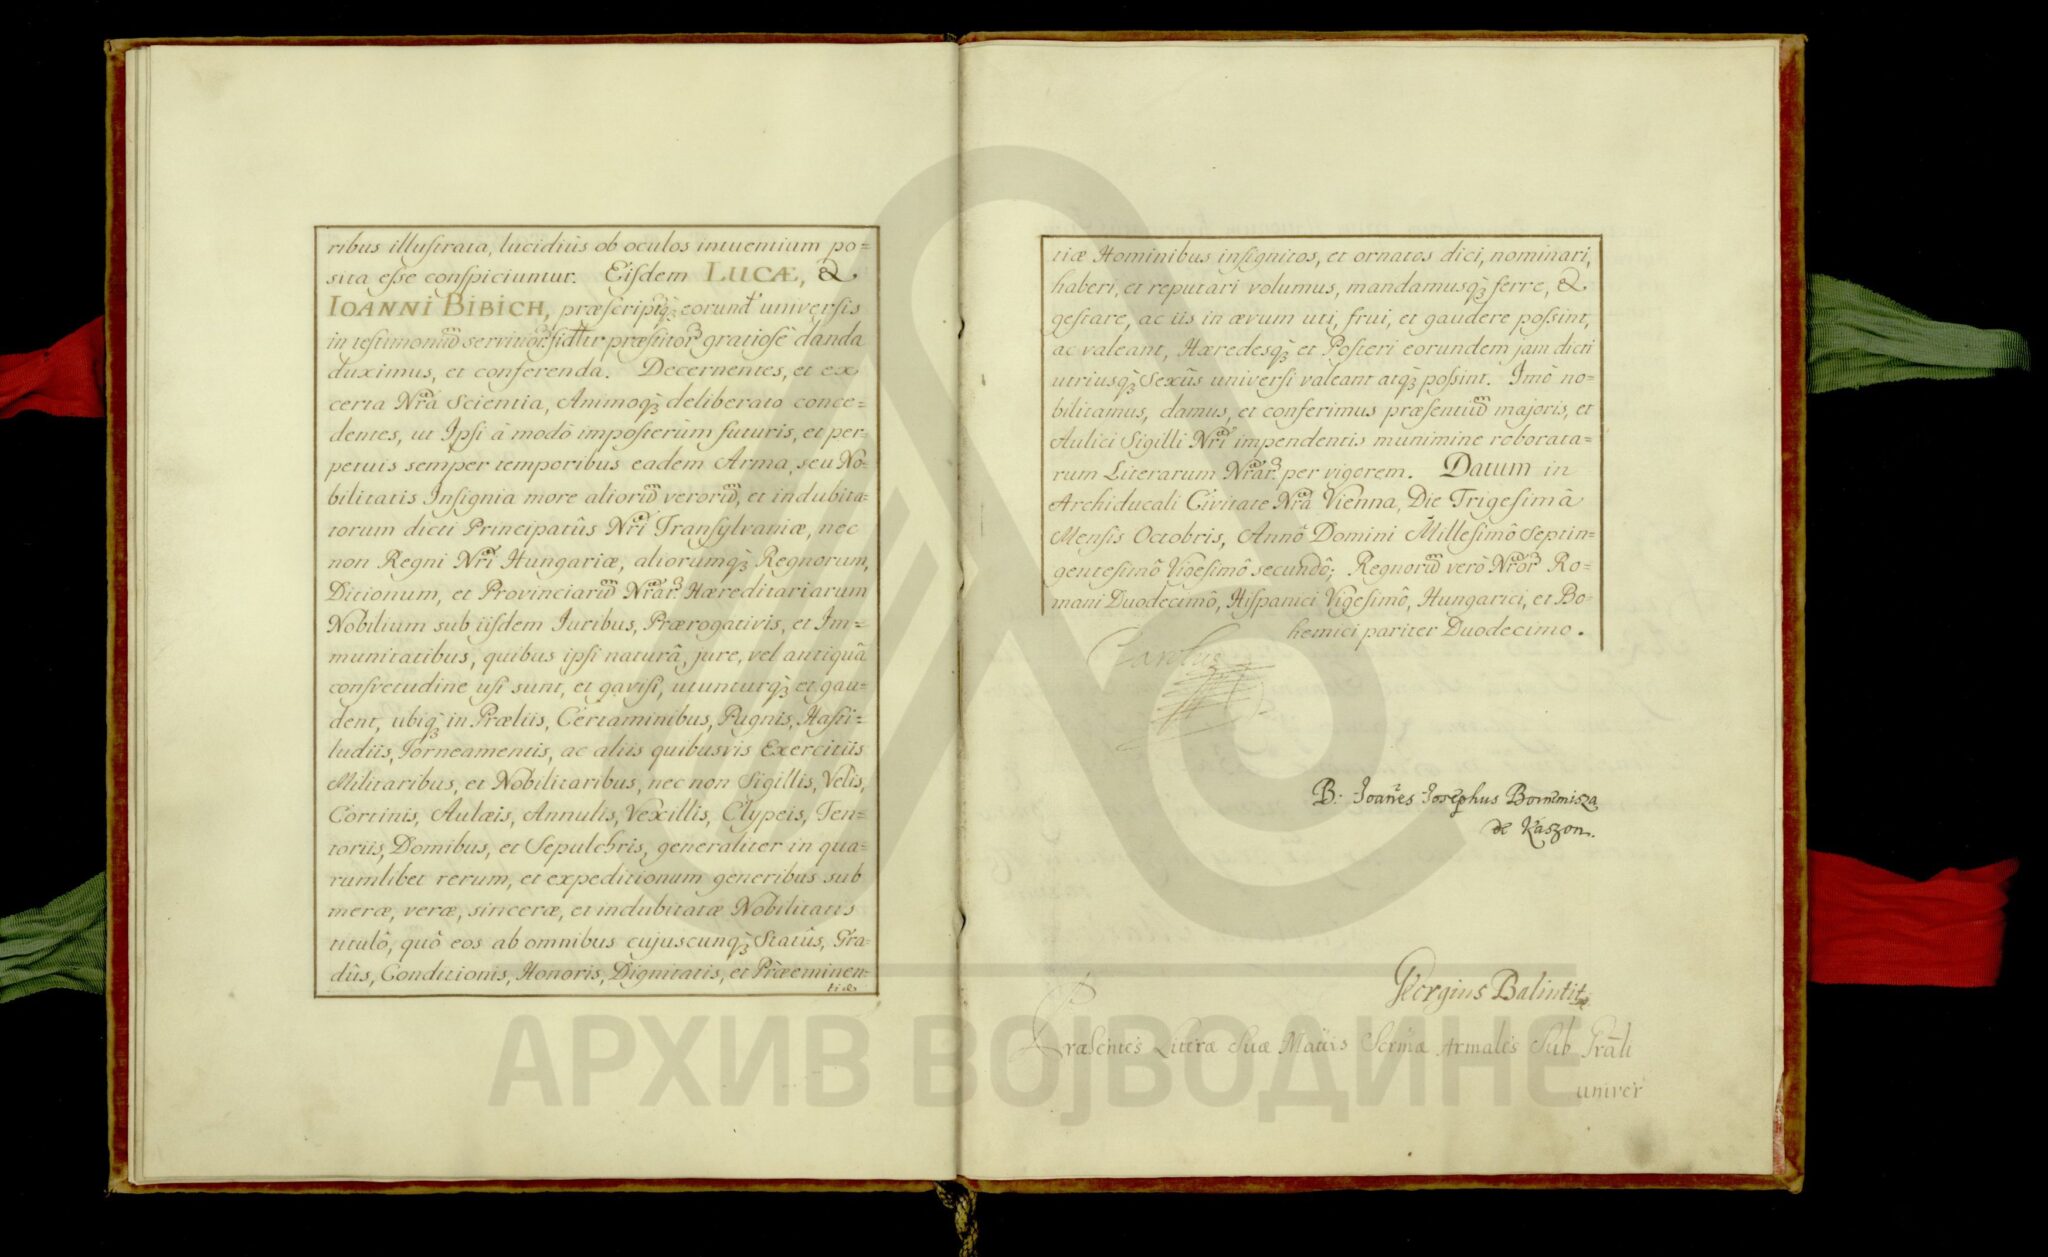 ribus illuſtrata, lucidiùs ob oculos intuentium po=
sita eſse conſpiciuntur. Eiſdem LUCÆ, &
IOANNI BIBICH, præſcriptq̀3 eorund' universis
in teſtimoniũ servitior. fidltr præſtitor gratiosè danda
duximus, et conferenda. Decernentes, et ex
certa Nrã Scientia, Animoq̀3 deliberato conce=
dentes, ut Ipſi â modò impoſterùm futuris, et per=
petuis semper temporibus eadem Arma, seu No=
bilitatis Inſignia more aliorũ verorũ, et indubita=
torum dicti Principatûs Nrĩ Transÿlvaniæ, nec
non Regni Nrĩ Hungariæ, aliorumq̀3 Regnorum,
Ditionum, et Provinciarũ Nrar Hæreditariarum
Nobilium sub iiſdem Iuribus, Prærogativis, et Im=
munitatibus, quibus ipſi naturâ, jure, vel antiquâ
conſvetudine uſi sunt, et gaviſi, utunturq̀3 et gau=
dent, ubiq̀3 in Præliis, Certaminibus, Pugnis, Haſti=
ludiis, Torneamentis, ac aliis quibusvis Exercitiis
Militaribus, et Nobilitaribus, nec non Sigillis, Velis,
Cortinis, Aulæis, Annulis, Vexillis, Clypeis, Ten=
toriis, Domibus, et Sepulchris, generaliter in qua=
rumlibet rerum, et expeditionum generibus sub
meræ, veræ, sinceræ, et indubitatæ Nobilitatis
titulô, quô eos ab omnibus cujuscunq̀3 Statûs, Gra=
dûs, Conditionis, Honoris, Dignitatis, et Præeminen=
tiæ
tiæ Hominibus inſignitos, et ornatos dici, nominari,
haberi, et reputari volumus, mandamusq̀3 ferre, &
geſtare, ac iis in ævum uti, frui, et gaudere poſsint,
ac valeant, Hæredesq̀3 et Poſteri eorundem jam dicti
utriusq̀3 Sexûs universi valeant atq̀3 poſsint. Imò no=
bilitamus, damus, et conferimus præſentiũ majoris, et
Aulici Sigilli Nrĩ impendentis munimine roborata=
rum Literarum Nrar per vigorem. Datum in
Archiducali Civitate Nrã Vienna, Die Trigeſimâ
Mensis Octobris, Annô Domini Milleſimô Septin=
genteſimô Vigeſimô secundô; Regnorũ verò Nror Ro=
mani Duodecimô, Hiſpanici Vigeſimô, Hungarici, et Bo=
hemici pariter Duodecimo.
Carolus
B. Ioañes Iosephus Bornemisza
de Kászon.
Georgius Balintit
Præsentes Literæ Suæ Mattis Sermæ Armales Sub Grãli
univer
АРХИВ ВОЈВОДИНЕ